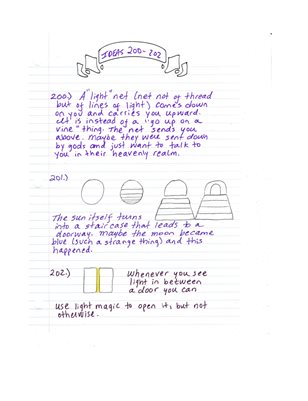 IDEAS 200-202
200.) A "light" net (net not of thread
but of lines of light) comes down
on you and carries you upward.
It is instead of a "go up on a
vine" thing. The "net" sends you
above. Maybe they were sent down
by gods and just want to talk to
you in their heavenly realm.
201.)
The sun itself turns
into a staircase that leads to a
doorway. Maybe the moon became
blue (such a strange thing) and this
happened.
202.) Whenever you see
light in between
a door you can
use light magic to open it, but not
otherwise.